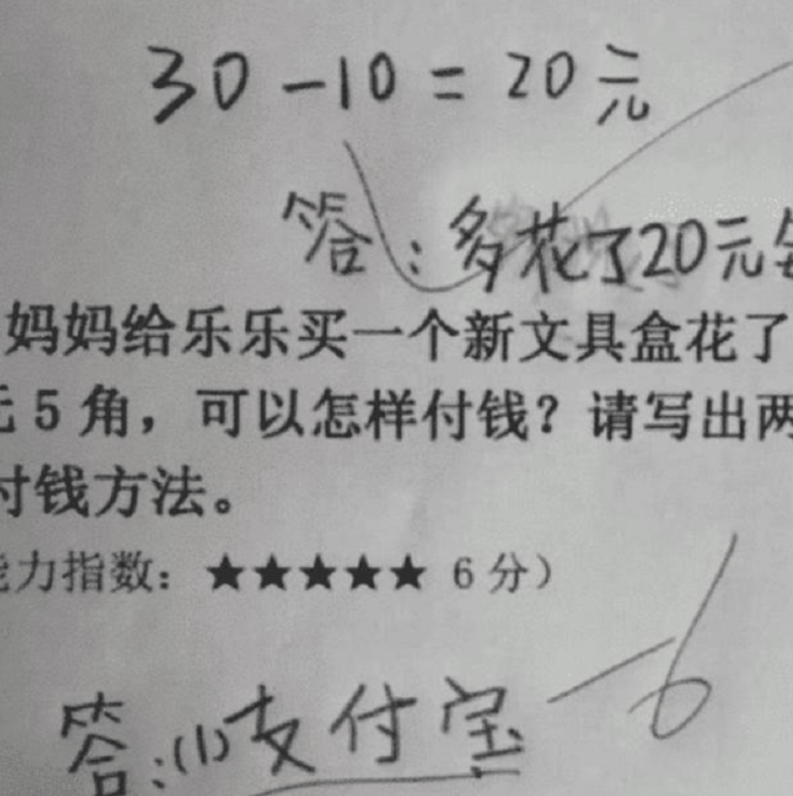 30-10=20元
答:多花了20元
妈妈给乐乐买一个新文具盒花了
5角，可以怎样付钱？请写出两
付钱方法。
能力指数：★★★★★ 6分）
答:(1)支付宝 -6